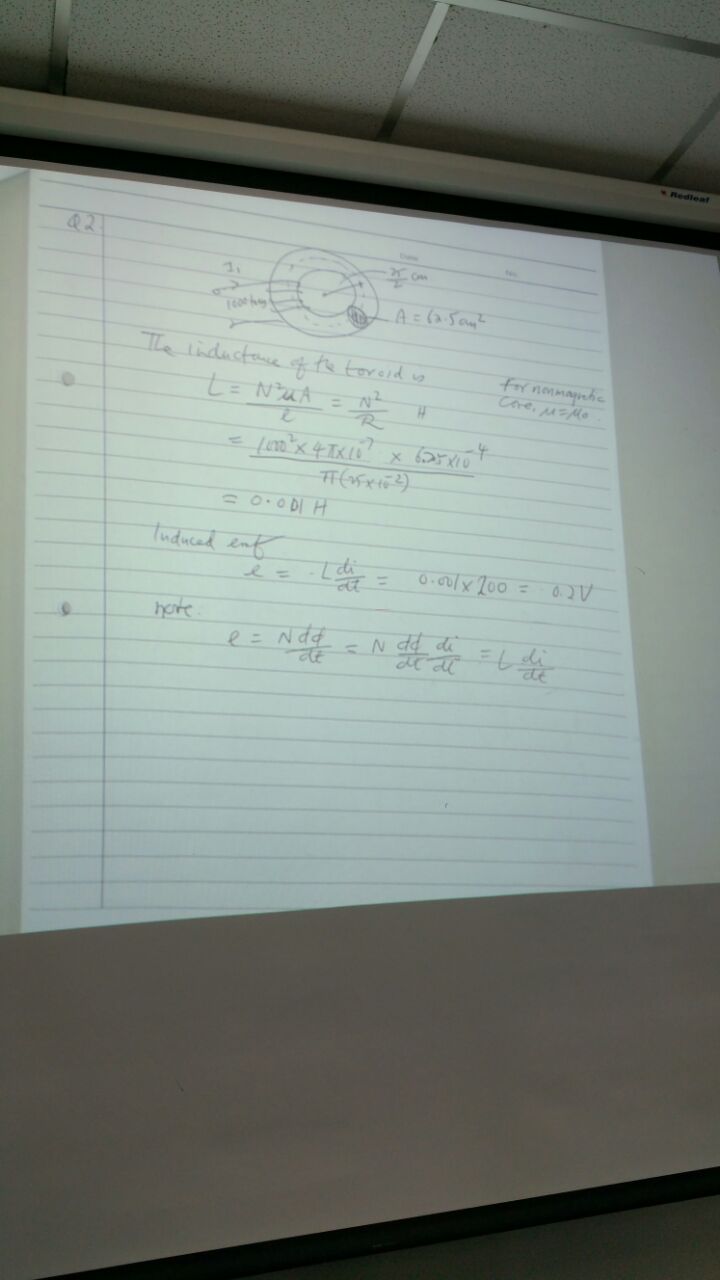 Redleaf
Q2.
Date
No.
I₁
25/2 cm
1000 turns
A = 62.5 cm²
The inductance of the toroid is
For nonmagnetic
core, μ = μ₀.
L = N²μA/l = N²/R H
= 1000² × 4π×10⁻⁷ × 6.25×10⁻⁴ / π(25×10⁻²)
= 0.001 H
Induced emf
e = -L di/dt = 0.001 × 200 = 0.2V
note.
e = N dφ/dt = N dφ/dt di/dt = L di/dt